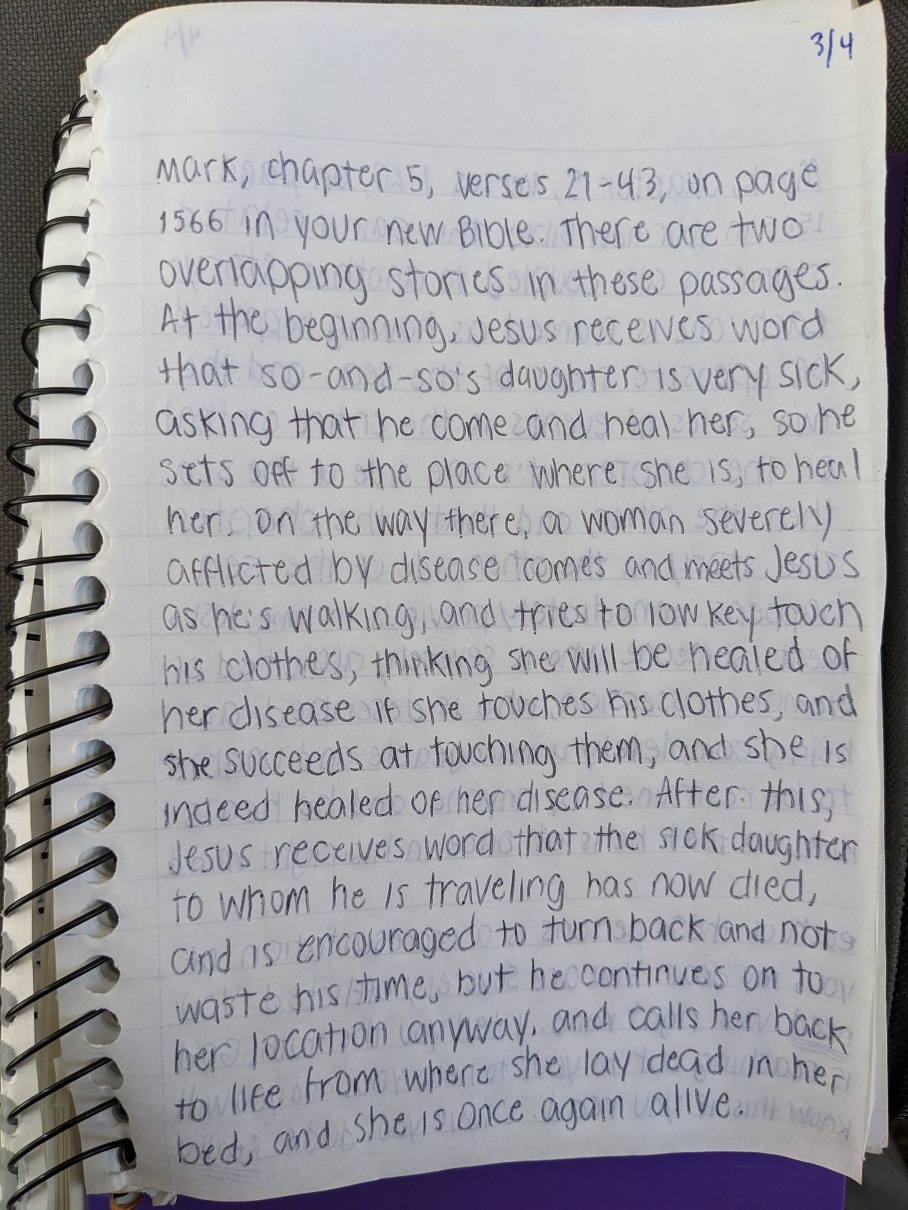 3/4
Mark, chapter 5, verses 21-43, on page
1566 in your new Bible. There are two
overlapping stories in these passages.
At the beginning, Jesus receives word
that so-and-so's daughter is very sick,
asking that he come and heal her, so he
sets off to the place where she is, to heal
her. On the way there, a woman severely
afflicted by disease comes and meets Jesus
as he's walking, and tries to low key touch
his clothes, thinking she will be healed of
her disease if she touches his clothes, and
she succeeds at touching them, and she is
indeed healed of her disease. After this,
Jesus receives word that the sick daughter
to whom he is traveling has now died,
and is encouraged to turn back and not
waste his time, but he continues on to
her location anyway, and calls her back
to life from where she lay dead in her
bed, and she is once again alive.